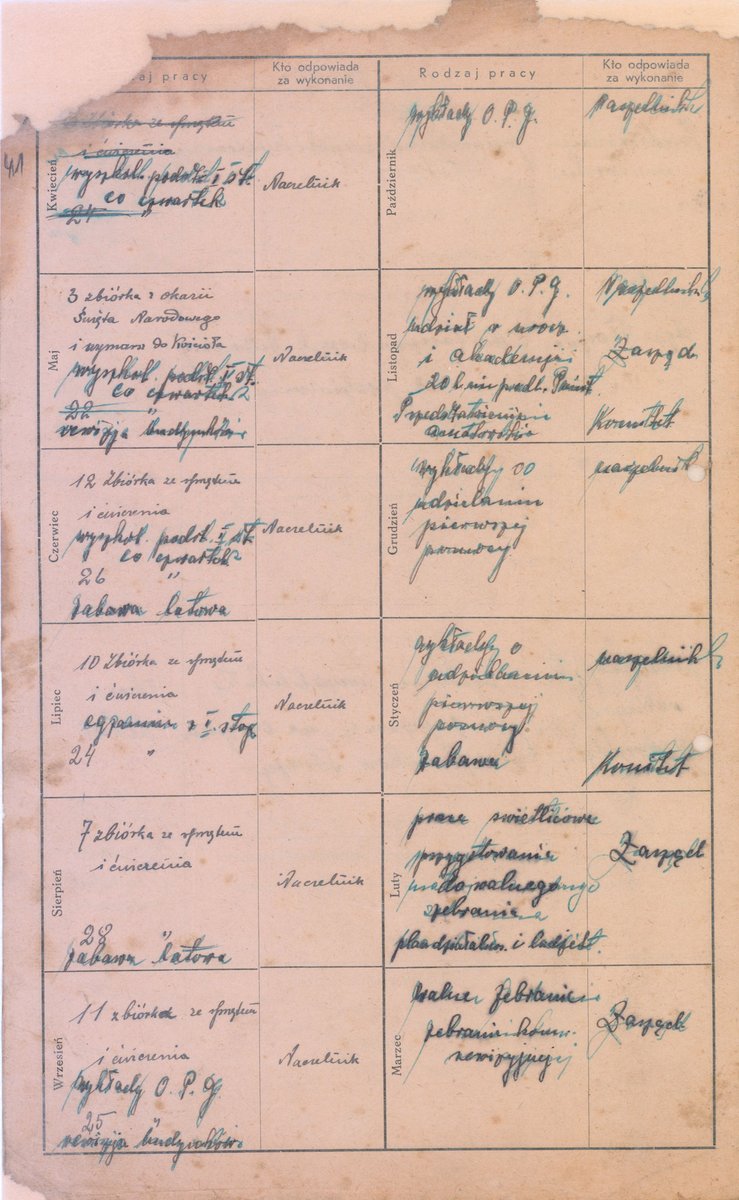 aj pracy
Kto odpowiada
za wykonanie
Rodzaj pracy
Kto odpowiada
za wykonanie
41
Kwiecień
zbiórka ze sprzętem
i ćwiczenia
wyszkol. podst. I st.
co czwartek
24 "
Naczelnik
Maj
3 zbiórka z okazii
Święta Narodowego
i wymarsz do Kościoła
wyszkol. podst. II st.
co czwartek
22 "
rewizja budynków
Naczelnik
Czerwiec
12 Zbiórka ze sprzętem
i ćwiczenia
wyszkol. podst. II st.
co czwartek
26 "
Zabawa latowa
Naczelnik
Lipiec
10 Zbiórka ze sprzętem
i ćwiczenia
egzamin z II. stop.
24 "
Naczelnik
Sierpień
7 zbiórka ze sprzętem
i ćwiczenia
28 "
Zabawa latowa
Naczelnik
Wrzesień
11 zbiórka ze sprzętem
i ćwiczenia
wykłady O. P. G.
25 "
rewizja budynków
Naczelnik
Październik
wykłady O. P. G.
Naczelnik
Listopad
wykłady O. P. G.
udział w urocz.
i akademji
20 l.
Przedstawienie
amatorskie
Naczelnik
Zarząd
Komitet
Grudzień
wykłady o
udzielaniu
pierwszej
pomocy
naczelnik
Styczeń
wykłady o
udzielaniu
pierwszej
pomocy
Zabawa
naczelnik
Komitet
Luty
prace świetlicowe
przygotowanie
do walnego
zebrania
Zarząd
Marzec
walne Zebranie
zebranie kom.
rewizyjnej
Zarząd